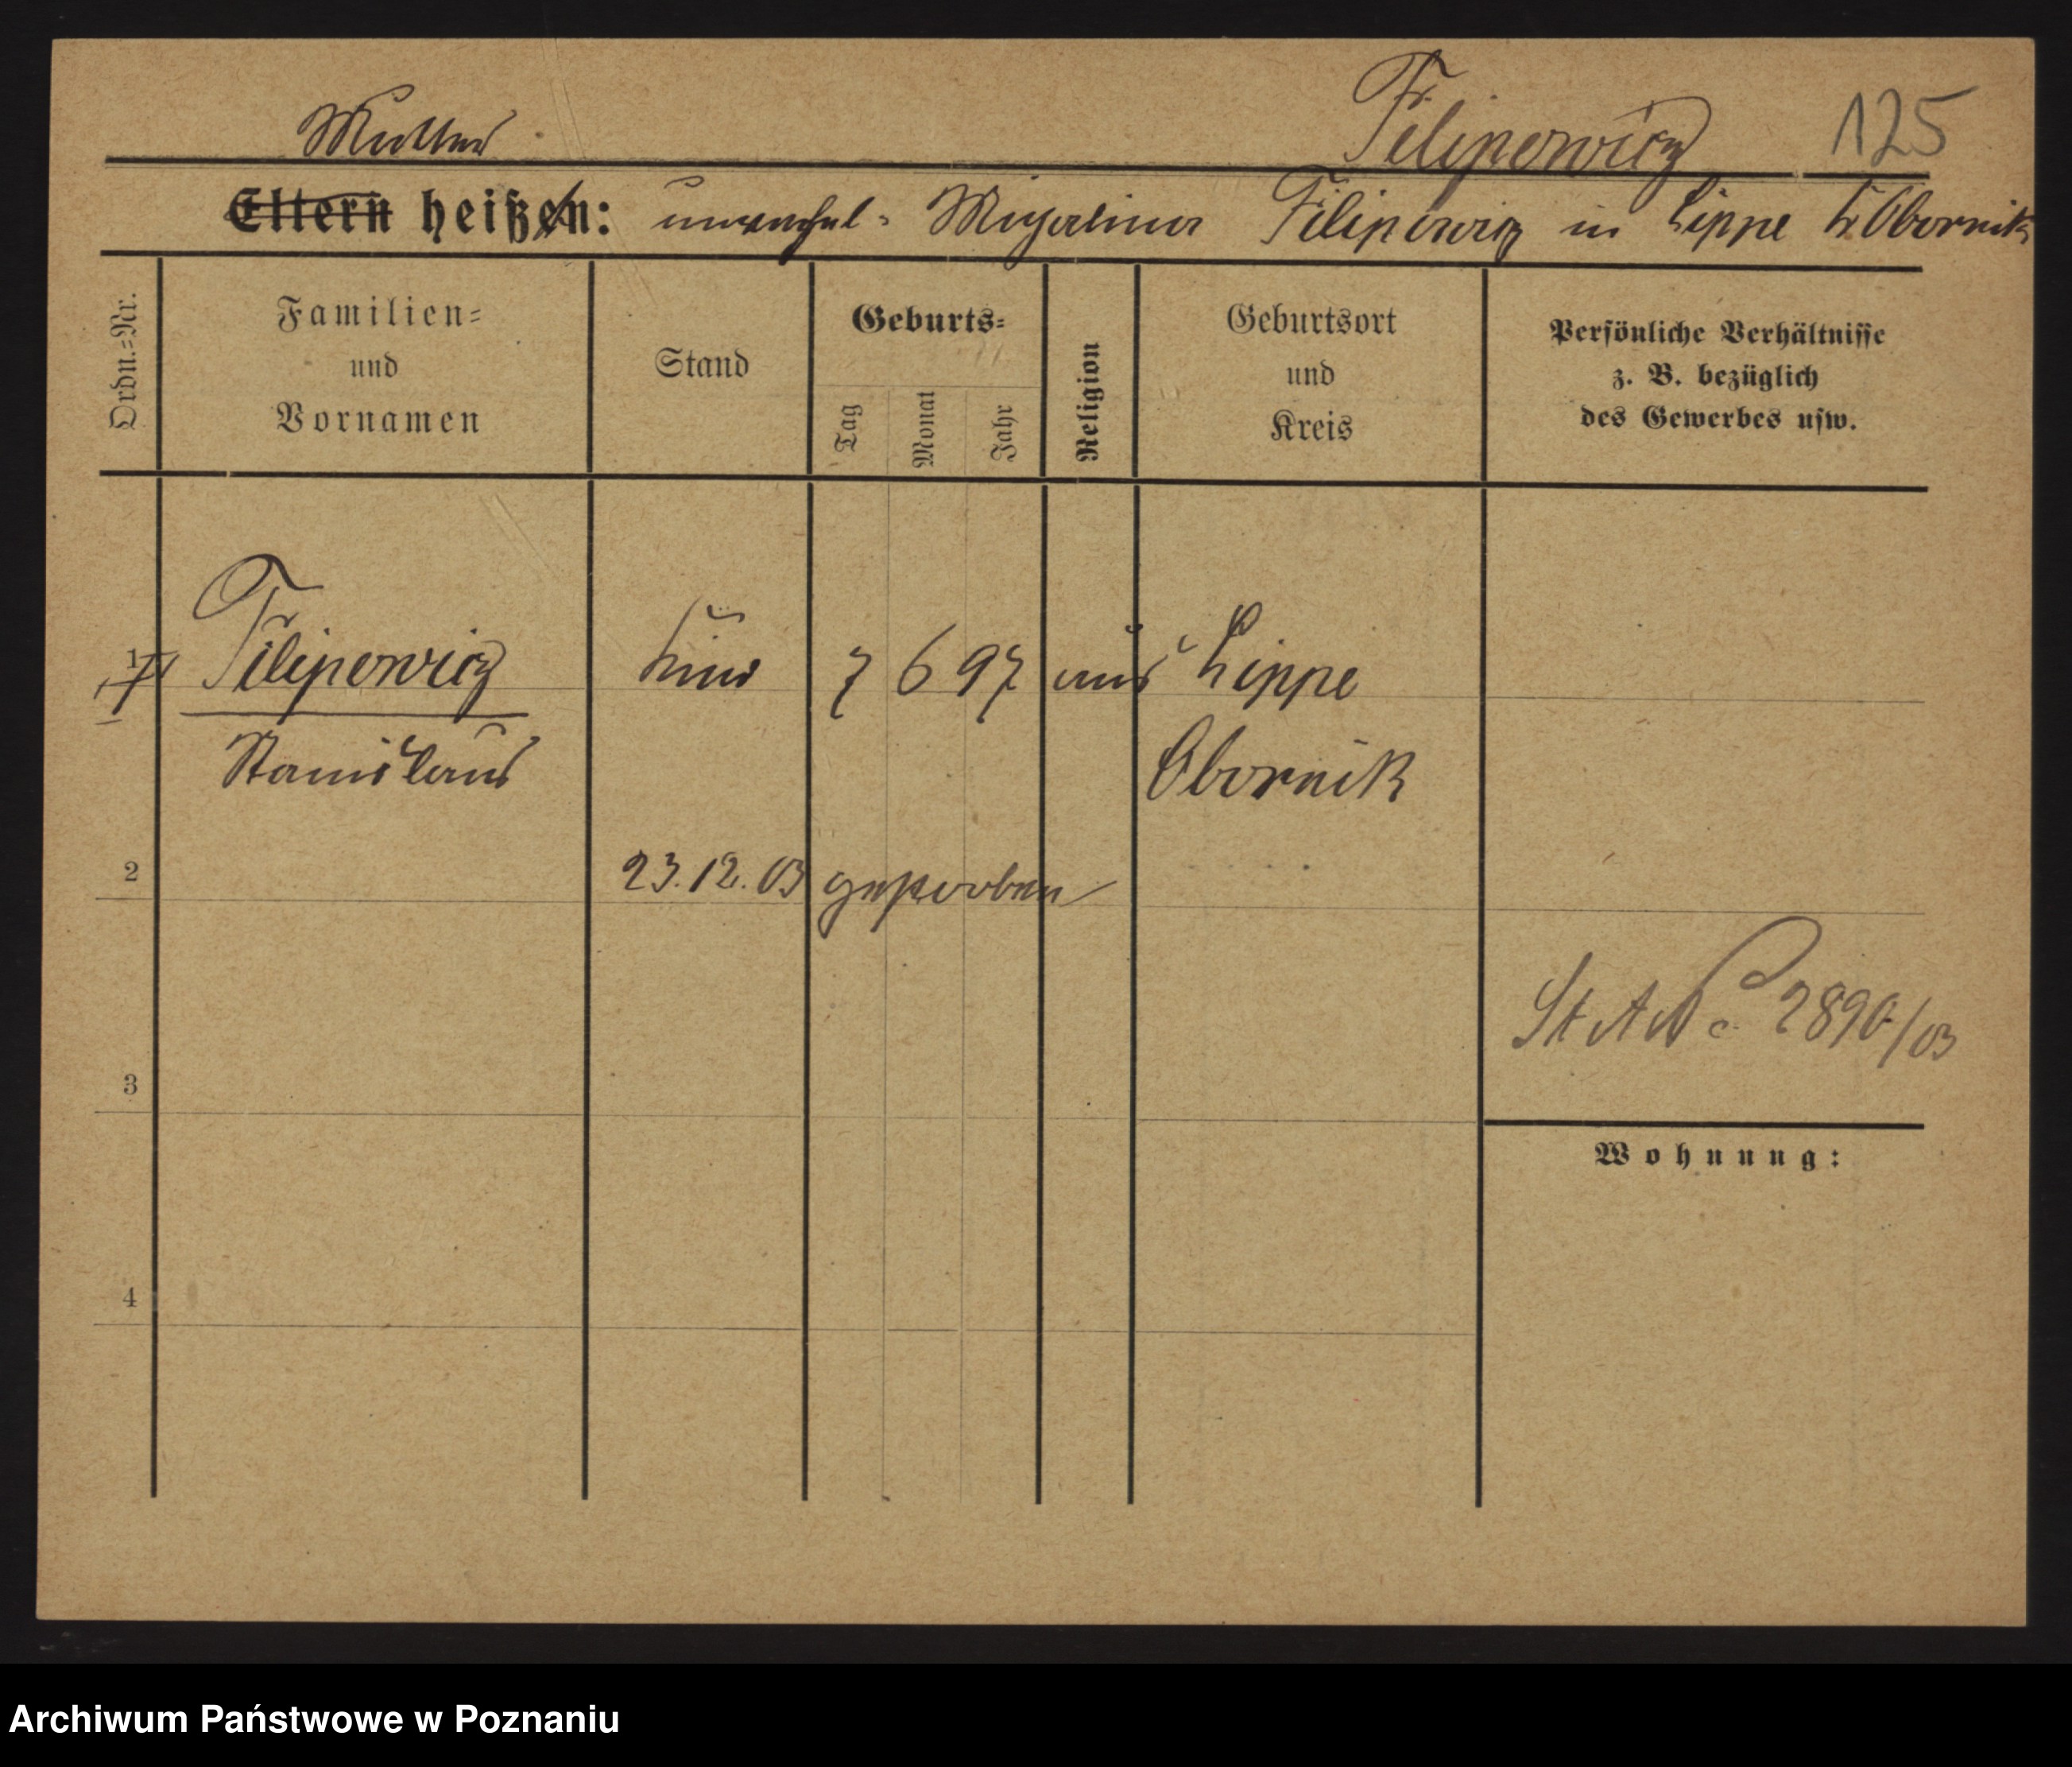 Mutter
Filipowicz 125
Eltern heißen: unverehel. Michalina Filipowicz in Lippe Kr. Obornik
Ordn.=Nr.
Familien=
und
Vornamen
Stand
Geburts=
Tag
Monat
Jahr
Religion
Geburtsort
und
Kreis
Persönliche Verhältnisse
z. B. bezüglich
des Gewerbes usw.
1 Filipowicz 7 6 97 Lippe
Stanislaus Obornik
2 23.12.03 gestorben
St A 2890/03
3
Wohnung:
4
Archiwum Państwowe w Poznaniu